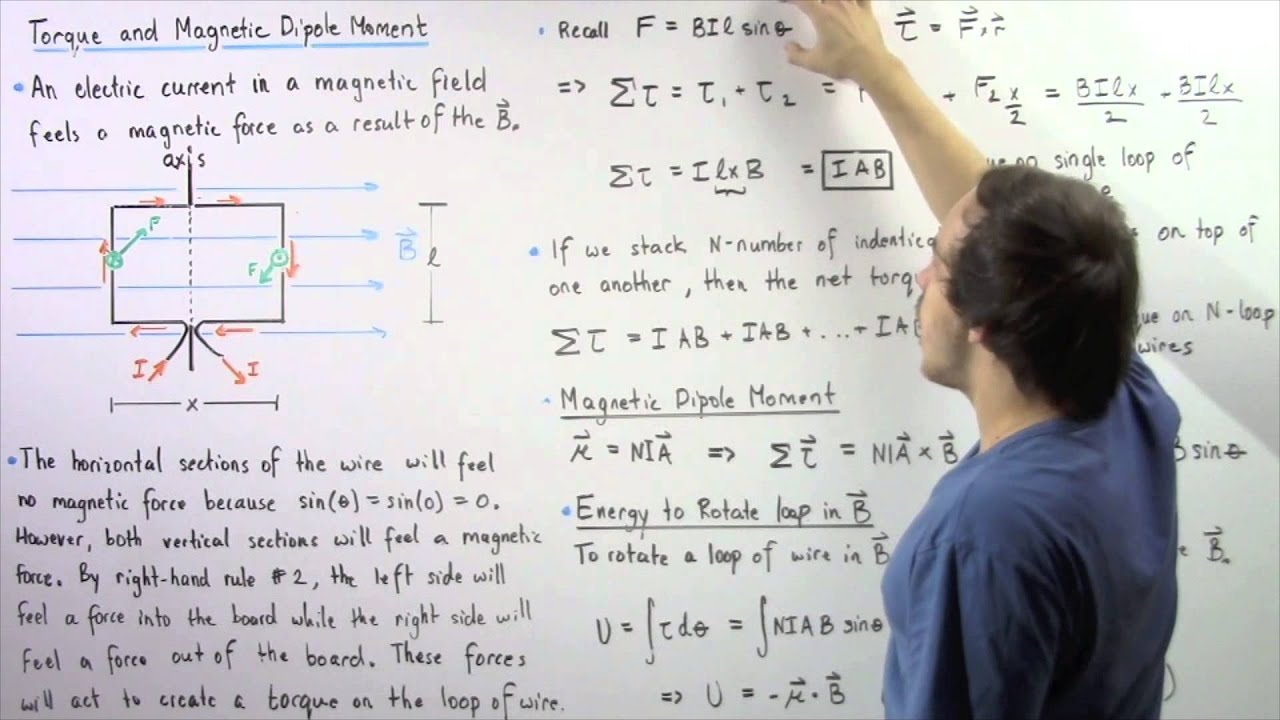 Torque and Magnetic Dipole Moment
• An electric current in a magnetic field
feels a magnetic force as a result of the B⃗.
axis
F
F
B⃗
l
I
I
x
• The horizontal sections of the wire will feel
no magnetic force because sin(θ) = sin(0) = 0.
However, both vertical sections will feel a magnetic
force. By right-hand rule #2, the left side will
feel a force into the board while the right side will
feel a force out of the board. These forces
will act to create a torque on the loop of wire.
• Recall F = BIl sinθ τ⃗ = F⃗ × r⃗
=> Στ = τ₁ + τ₂ = + F₂ x/2 = BIlx/2 + BIlx/2
Στ = I lx B = IAB on single loop of
• If we stack N-number of indentica on top of
one another, then the net torqu
Στ = IAB + IAB + ... + IAB on N-loop
wires
• Magnetic Dipole Moment
μ⃗ = NIA⃗ => Στ⃗ = NIA⃗ × B⃗ B sinθ
• Energy to Rotate loop in B⃗
To rotate a loop of wire in B⃗ B⃗.
U = ∫τdθ = ∫NIAB sinθ
=> U = -μ⃗ · B⃗ )